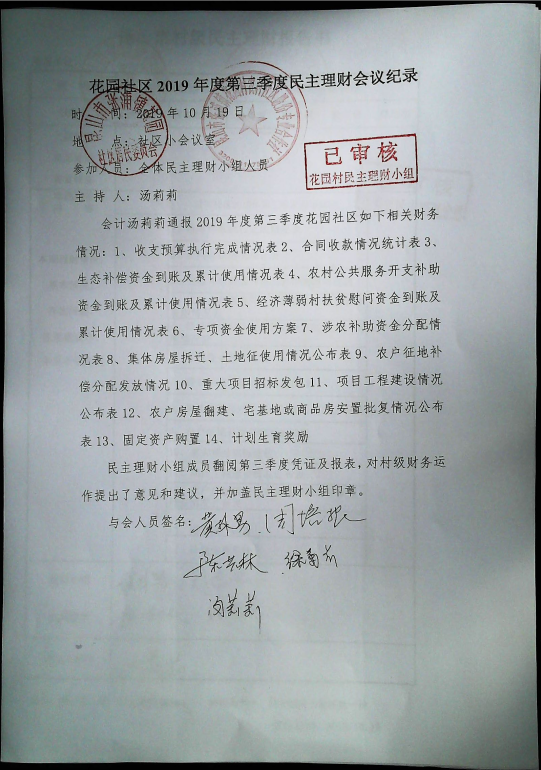 花园社区2019年度第三季度民主理财会议纪录
时 间：2019年10月19日
地 点：社区小会议室
参加人员：全体民主理财小组人员
已审核
花园村民主理财小组
主 持 人：汤莉莉
会计汤莉莉通报2019年度第三季度花园社区如下相关财务
情况：1、收支预算执行完成情况表2、合同收款情况统计表3、
生态补偿资金到账及累计使用情况表4、农村公共服务开支补助
资金到账及累计使用情况表5、经济薄弱村扶贫慰问资金到账及
累计使用情况表6、专项资金使用方案7、涉农补助资金分配情
况表8、集体房屋拆迁、土地征使用情况公布表9、农户征地补
偿分配发放情况10、重大项目招标发包11、项目工程建设情况
公布表12、农户房屋翻建、宅基地或商品房安置批复情况公布
表13、固定资产购置14、计划生育奖励
民主理财小组成员翻阅第三季度凭证及报表，对村级财务运
作提出了意见和建议，并加盖民主理财小组印章。
与会人员签名：
汤莉莉